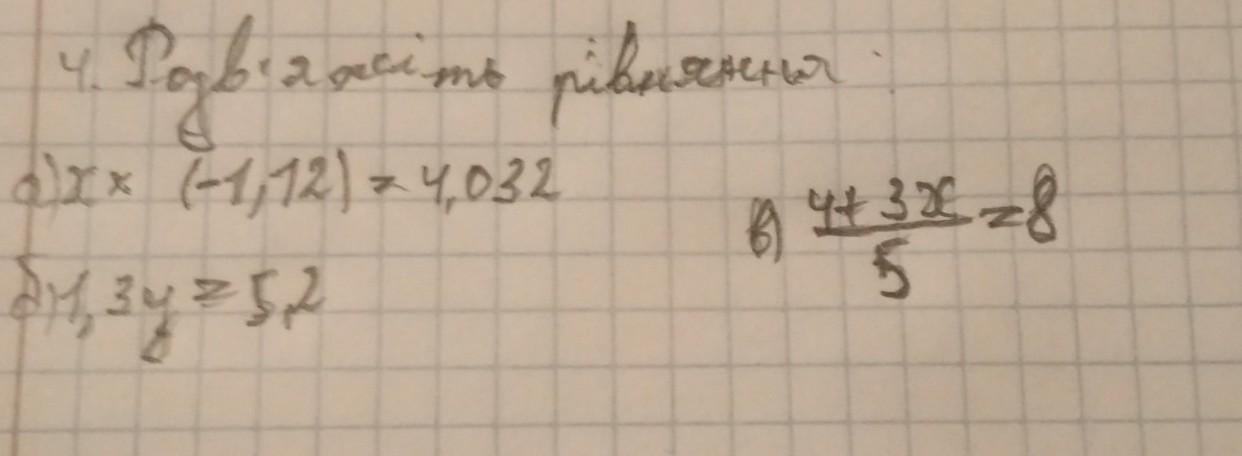 4. Розв'яжіть рівняння:
а) x × (-1,12) = 4,032
б) 1,3y = 5,2
в) 4 + 3x / 5 = 8